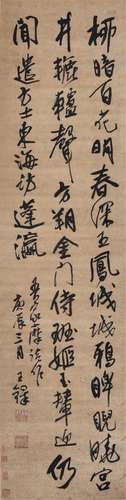 柳暗百花明春深五鳳城城鴉睥睨曉宮
井轆轤聲方朔金門侍班姬玉輦迎仍
聞遣方士東海訪蓬瀛
摩詰作
庚辰三月王鐸